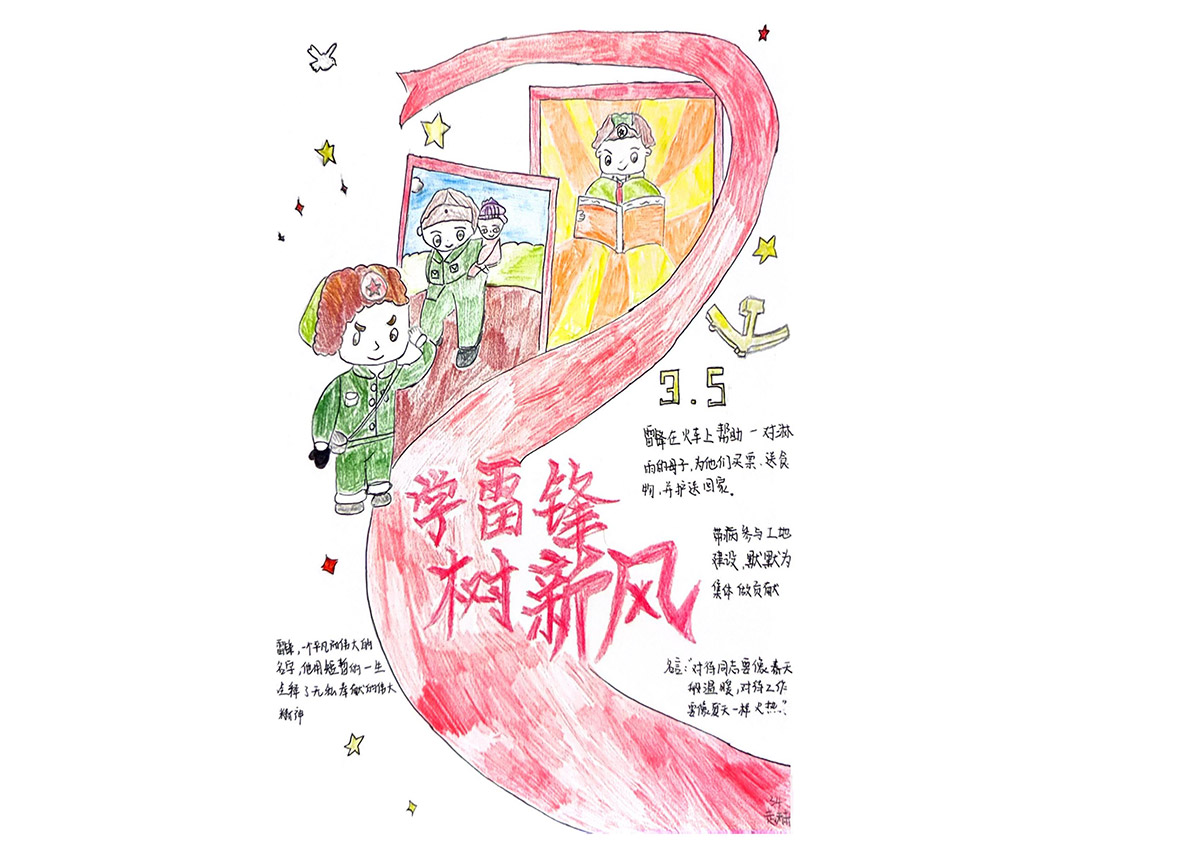 3.5
雷锋在火车上帮助一对淋
雨的母子,为他们买票、送食
物,并护送回家。
学雷锋
树新风
带病参与工地
建设,默默为
集体做贡献
雷锋,一个平凡而伟大的
名字,他用短暂的一生
诠释了无私奉献的伟大
精神
名言:“对待同志要像春天
般温暖,对待工作
要像夏天一样火热”